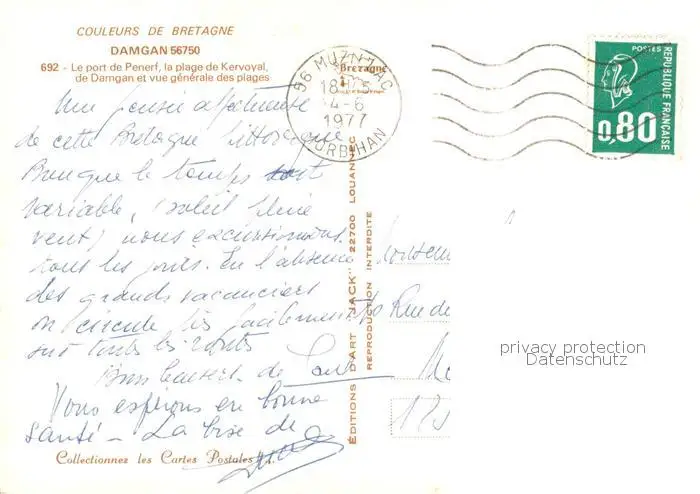 COULEURS DE BRETAGNE
DAMGAN 56750
692 - Le port de Penerf, la plage de Kervoyal,
de Damgan et vue générale des plages
Bretagne
56 MUZILLAC
18H15
4-6
1977
MORBIHAN
POSTES
REPUBLIQUE FRANÇAISE
0,80
Une pensée affectueuse
de cette Bretagne pittoresque
Bien que le temps soit
variable, (soleil pluie
vent) nous excursionnons
tous les jours. En l'absence
des grands vacanciers
on circule très facilement
sur toutes les routes
Bon souvenir de
Vous espérons en bonne
santé - La bise de
Collectionnez les Cartes Postales
EDITIONS D'ART "JACK" 22700 LOUANNEC
REPRODUCTION INTERDITE
Rue de
privacy protection
Datenschutz